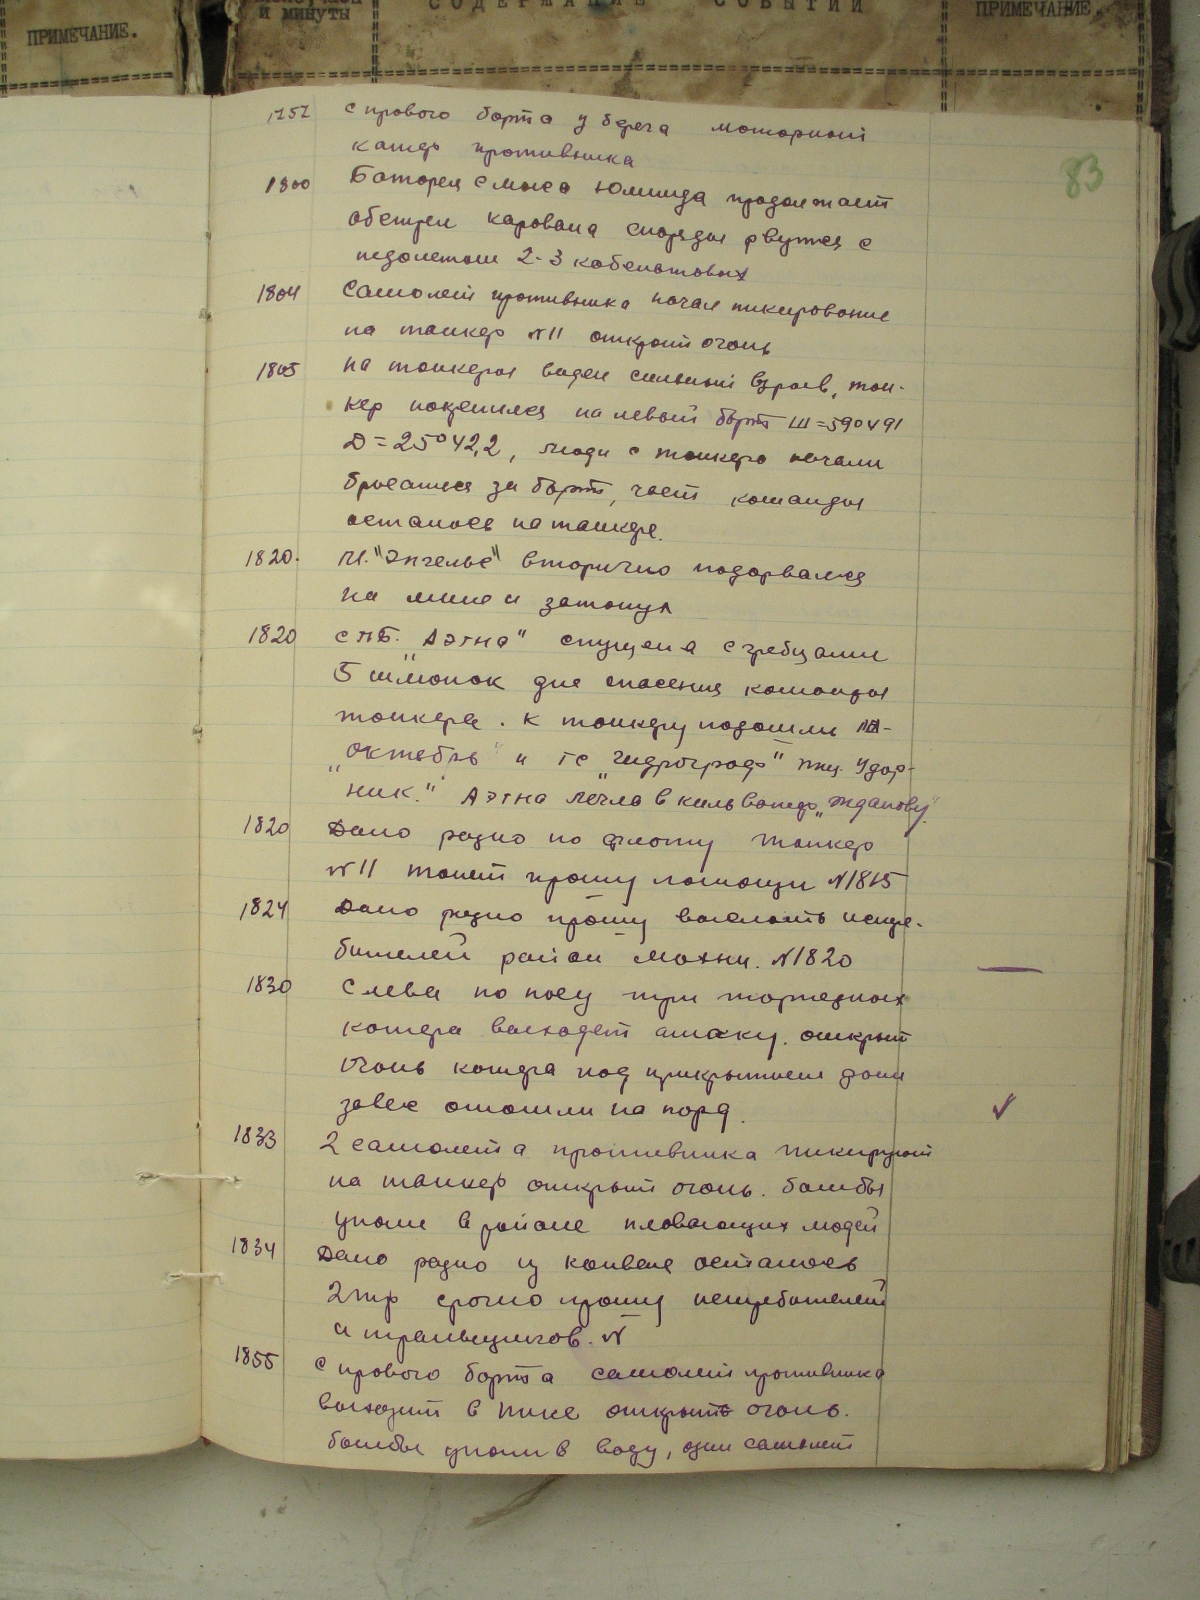 ПРИМЕЧАНИЕ.
и минуты
СОДЕРЖАНИЕ СОБЫТИЙ
ПРИМЕЧАНИЕ.
83
1757 С правого борта у берега моторный
катер противника
1800 Батарея с мыса Юминда продолжает
обстрел каравана снаряды рвутся с
недолетом 2-3 кабельтовых
1804 Самолет противника начал пикирование
на танкер №11 открыт огонь
1805 На танкере виден сильный взрыв, тан-
кер накренился на левый борт Ш=590491
Д=25°42,2, люди с танкера начали
бросаться за борт, часть команды
осталось на танкере.
1820. М. "Энгельс" вторично подорвался
на мине и затонул
1820 С ПБ. "Аэгна" спущена с гребцами
5 шлюпок для спасения команды
танкера. К танкеру подошли
"Октябрь" и ГС "Гидрограф" тщ. Удар-
ник." Аэгна легла в кильватер "Жданову"
1820 Дано радио по флоту танкер
№11 тонет прошу помощи №1815
1824 Дано радио прошу выслать истре-
бителей район Мохни. №1820
1830 Слева по носу три торпедных
катера выходят атаку. открыт
огонь катера под прикрытием дым
завес отошли на норд.
1833 2 самолета противника пикируют
на танкер открыт огонь. бомбы
упали в районе плавающих людей
1834 Дано радио из конвоя осталось
2 тр срочно прошу истребителей
и тральщиков. №
1855 С правого борта самолет противника
выходит в пике открыть огонь.
бомбы упали в воду, один самолет